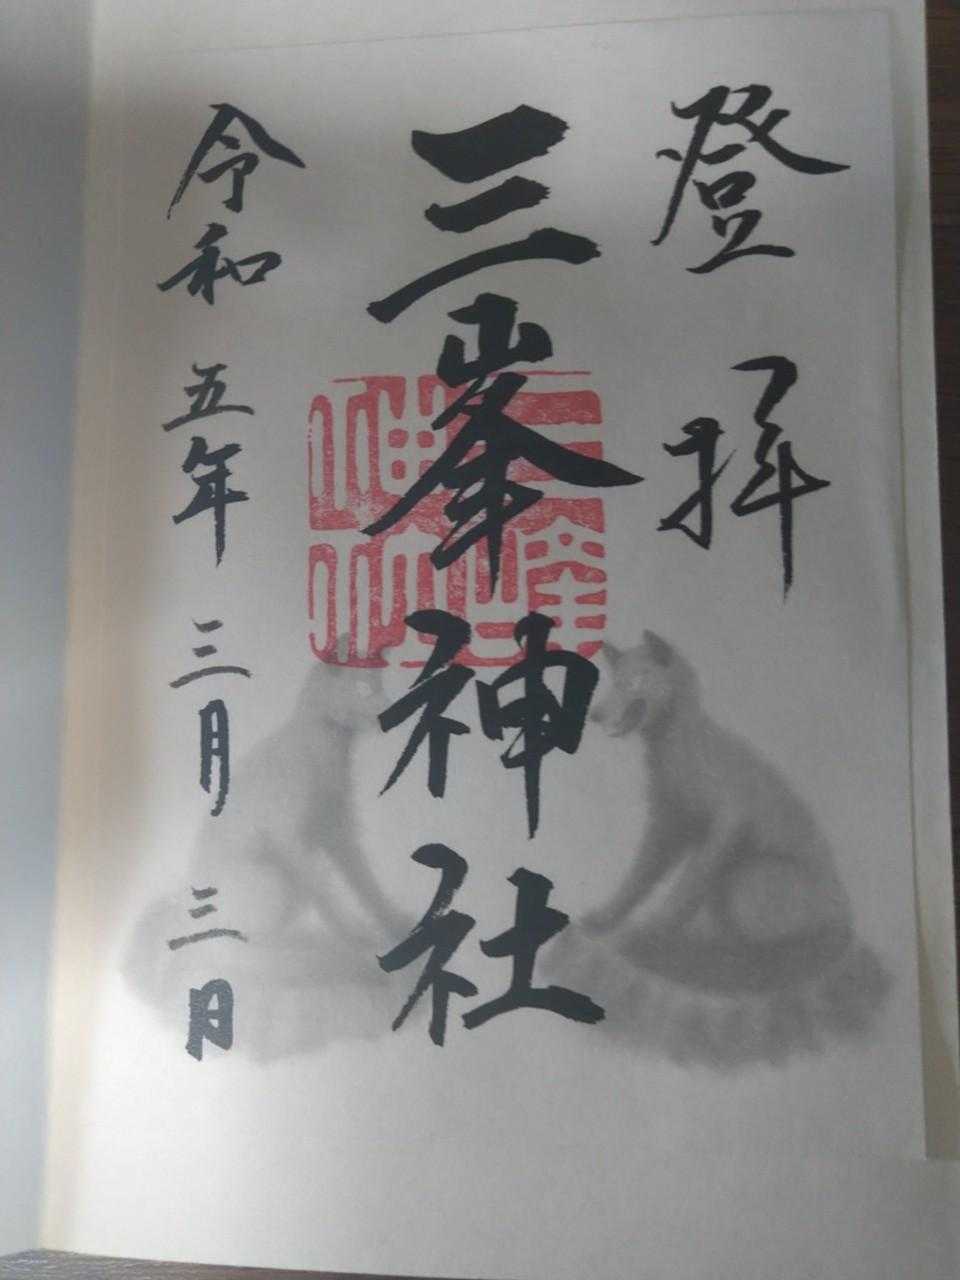 登拝
三峯神社
三峯神社
令和五年三月三日